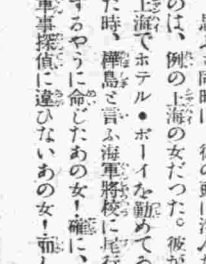 のは、例の上海の女だつた。彼が
上海でホテル・ボーイを勤めてゐ
た時、樺島と言ふ海軍將校に尾行
するやうに命じたあの女！確に、
軍事探偵に違ひないあの女！